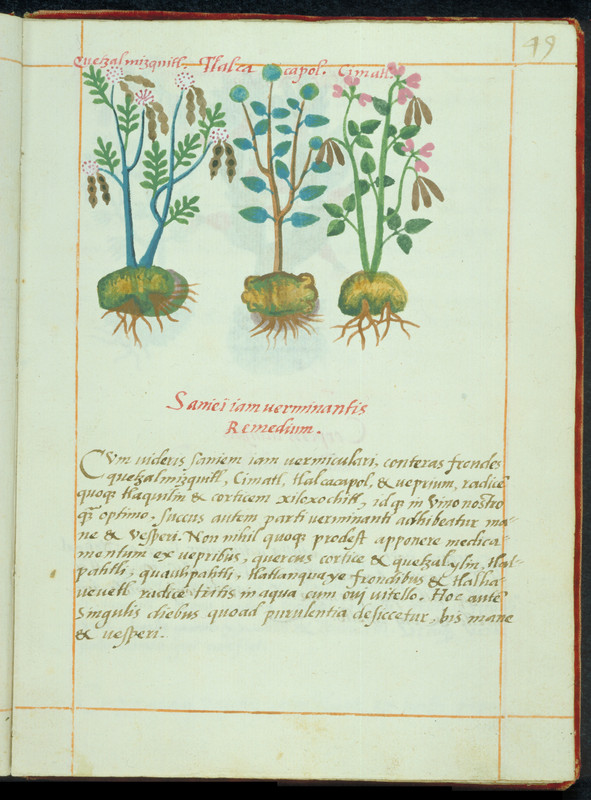 49
Quetzalmizquitl. Tlalca capol. Cimatl.
Saniei iam verminantis
Remedium.
Cvm uideris saniem iam vermiculari, conteras frondes
quetzalmizquitl, Cimatl, tlalcacapol, & veprium, radicē
quoq; tlaquilin & corticem xiloxochitl, idq; in Vino nostro
q̄; optimo. Succus autem parti verminanti adhibeatur ma=
ne & Vesperi. Non nihil quoq; prodest apponere medica=
mentum ex vepribus, quercus cortice & quetzalylin, tlal=
patitli, quauhpatitli, tlatlanquaye frondibus & tlalha=
ueuetl radice tritis in aqua cum ovi vitello. Hoc autē
singulis diebus quoad purulentia desiccetur, bis mane
& vesperi.